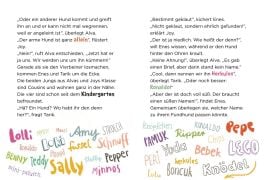 „Oder ein anderer Hund kommt und greift
ihn an und er kann nicht mal wegrennen,
weil er angeleint ist“, überlegt Alva.
„Der arme Hund ist ganz allein“, flüstert
Joy.
„Nein!“, ruft Alva entschieden. „Jetzt hat er
ja uns. Wir werden uns um ihn kümmern!“
Gerade als sie den Vierbeiner losmachen,
kommen Enes und Tarik um die Ecke.
Die beiden Jungs aus Alvas und Joys Klasse
sind Cousins und wohnen ganz in der Nähe.
Die vier sind schon seit dem Kindergarten
befreundet.
„Hä? Ein Hund? Wo habt ihr den denn
her?“, fragt Tarik.
Lolli
Lulu
Amy
Strolch
Ronaldo
Fussel
Schnuffi
Benny
Teddy
Sally
Pepper
Minnos
„Bestimmt geklaut“, kichert Enes.
„Nicht geklaut, sondern ehrlich gefunden!“,
erklärt Joy.
„Der ist ja niedlich. Wie heißt der denn?“,
will Enes wissen, während er den Hund
hinter den Ohren krault.
„Keine Ahnung“, überlegt Alva. „Es gab
einen Brief, aber darin stand kein Name.“
„Cool, dann nennen wir ihn Herkules“,
überlegt Tarik. „Oder noch besser:
Ronaldo!“
„Aber der ist doch voll süß. Der braucht
einen süßen Namen!“, findet Enes.
Gemeinsam überlegen sie, welcher Name
zu ihrem Fundhund passen könnte.
Family
Rudi
Rocky
Pepe
Lupo
Balu
Lego
Beiky
Herkules
Boncuk
Knödel